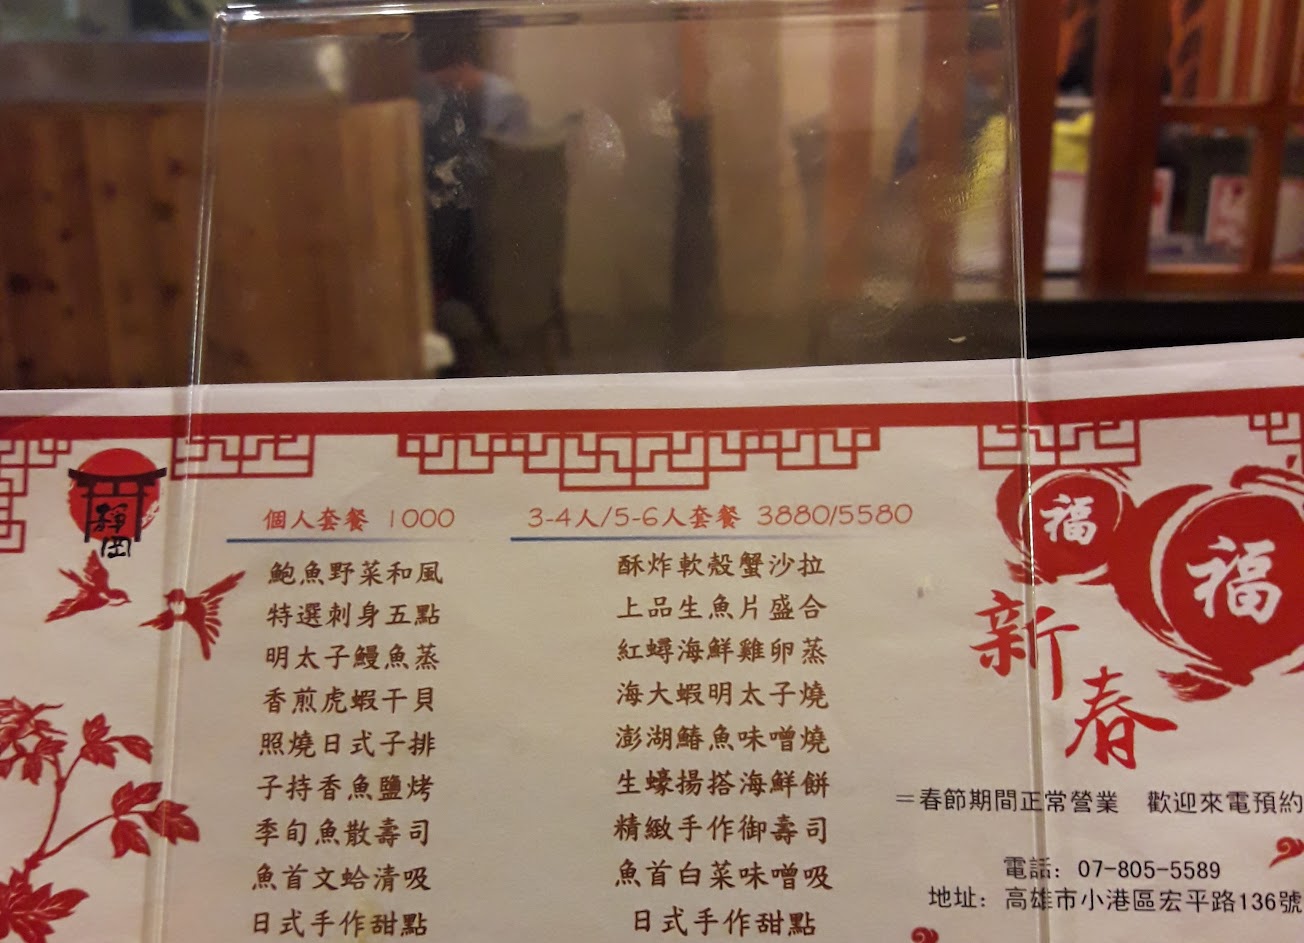 靜岡
個人套餐 1000
鮑魚野菜和風
特選刺身五點
明太子鰻魚蒸
香煎虎蝦干貝
照燒日式子排
子持香魚鹽烤
季旬魚散壽司
魚首文蛤清吸
日式手作甜點
3-4人/5-6人套餐 3880/5580
酥炸軟殼蟹沙拉
上品生魚片盛合
紅蟳海鮮雞卵蒸
海大蝦明太子燒
澎湖鰆魚味噌燒
生蠔揚搭海鮮餅
精緻手作御壽司
魚首白菜味噌吸
日式手作甜點
福
福
新春
=春節期間正常營業 歡迎來電預約
電話: 07-805-5589
地址: 高雄市小港區宏平路136號